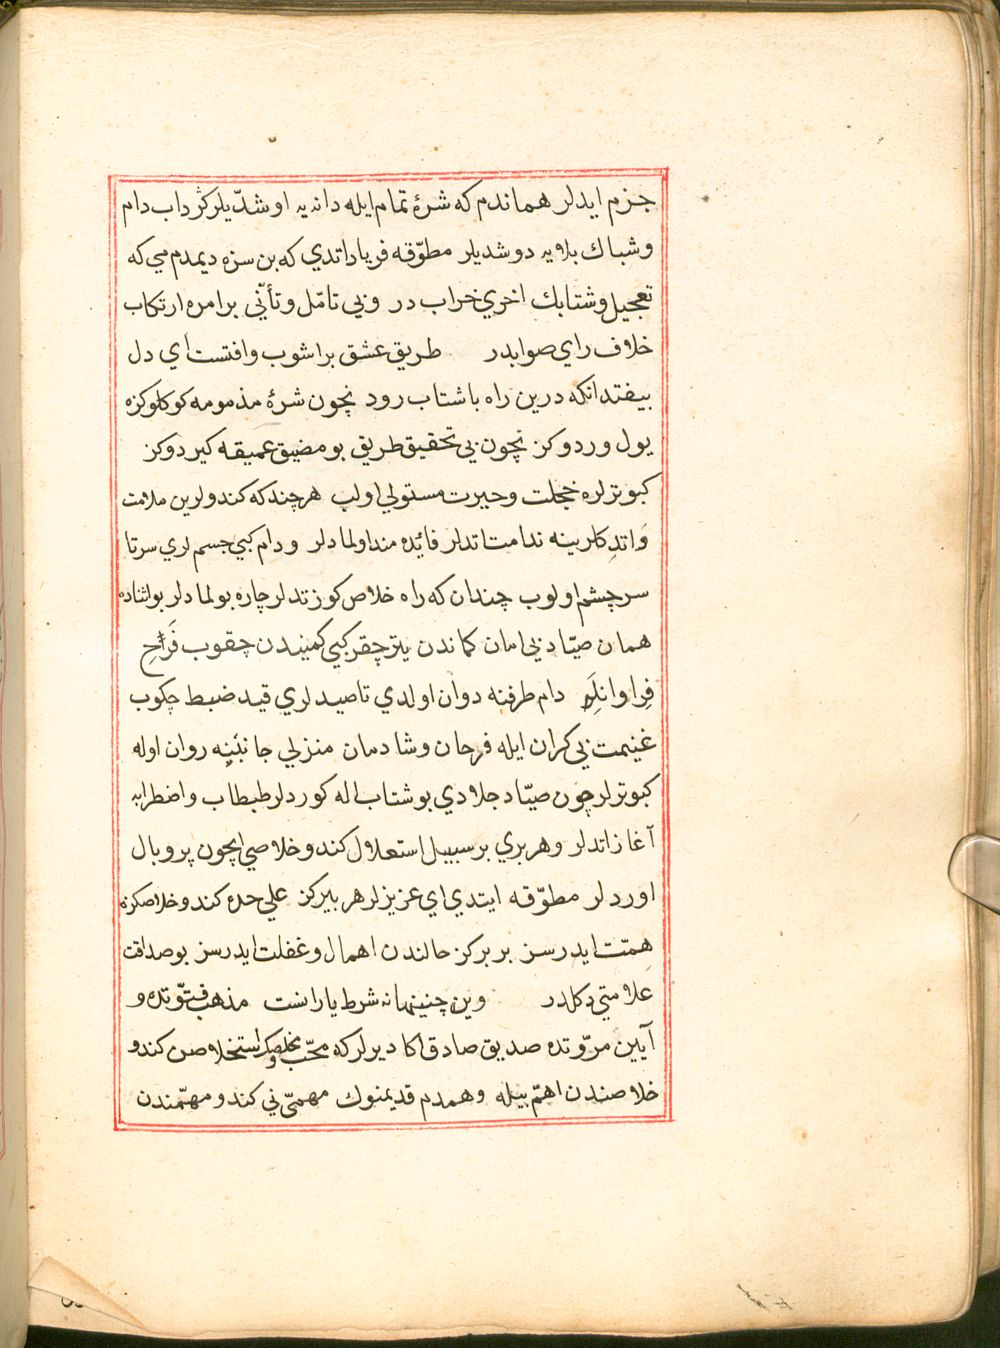 جزم ايدلر هماندم كه شرۀ تمام ايله دانه يه اوشديلر كرداب دام
وشباك بلاويه دوشديلر مطوّقه فرياد اتدي كه بن سزه ديمدم مي كه
تعجيل وشتابك اخري خراب در وبي تامّل وتأنّي بر امره ارتكاب
خلاف راي صوابدر طريق عشق پراشوب وافتست اي دل
بيفتد انكه درين راه باشتاب رود نچون شرۀ مذمومه كوكلوكزه
يول وردوكز نچون بي تحقيق طريق بو مضيق عميقه كيردوكز
كبوترلره خجلت وحيرت مستولي اولب هرچند كه كندولرين ملامت
واتدكلرينه ندامت اتدلر فائده مند اولمادلر ودام كبي جسم لري سرتا
سر چشم اولوب چندان كه راه خلاص كوزتدلر چاره بولمادلر بو اثناده
همان صيّاد بي امان كماندن يتر چقر كبي كمينيدن چقوب فرّاح
فراوانله دام طرفنه دوان اولدي تا صيدلري قيد ضبط چكوب
غنيمت بي كران ايله فرحان وشادمان منزلي جانبنه روان اوله
كبوترلر چون صيّاد جلادي بو شتاب اله كوردلر طبطاب واضطرابه
آغاز اتدلر وهر بري بر سبيل استعلال كندو خلاصي ايچون پروبال
اوردلر مطوّقه ايتدي اي عزيزلر هر بيركز علي حده كندو خلاصكزه
همّت ايدرسز بر بركز حالندن اهمال وغفلت ايدرسز بو صداقت
علامتي دكلدر وين چنينها نه شرط يارانست مذهب فتوّتده و
آيين مروّتده صديق صادق اكا ديرلر كه محبّ مخلصك استخلاصن كندو
خلاصندن اهمّ بيله وهمدم قديمنوك مهمّي ني كندو مهمّندن